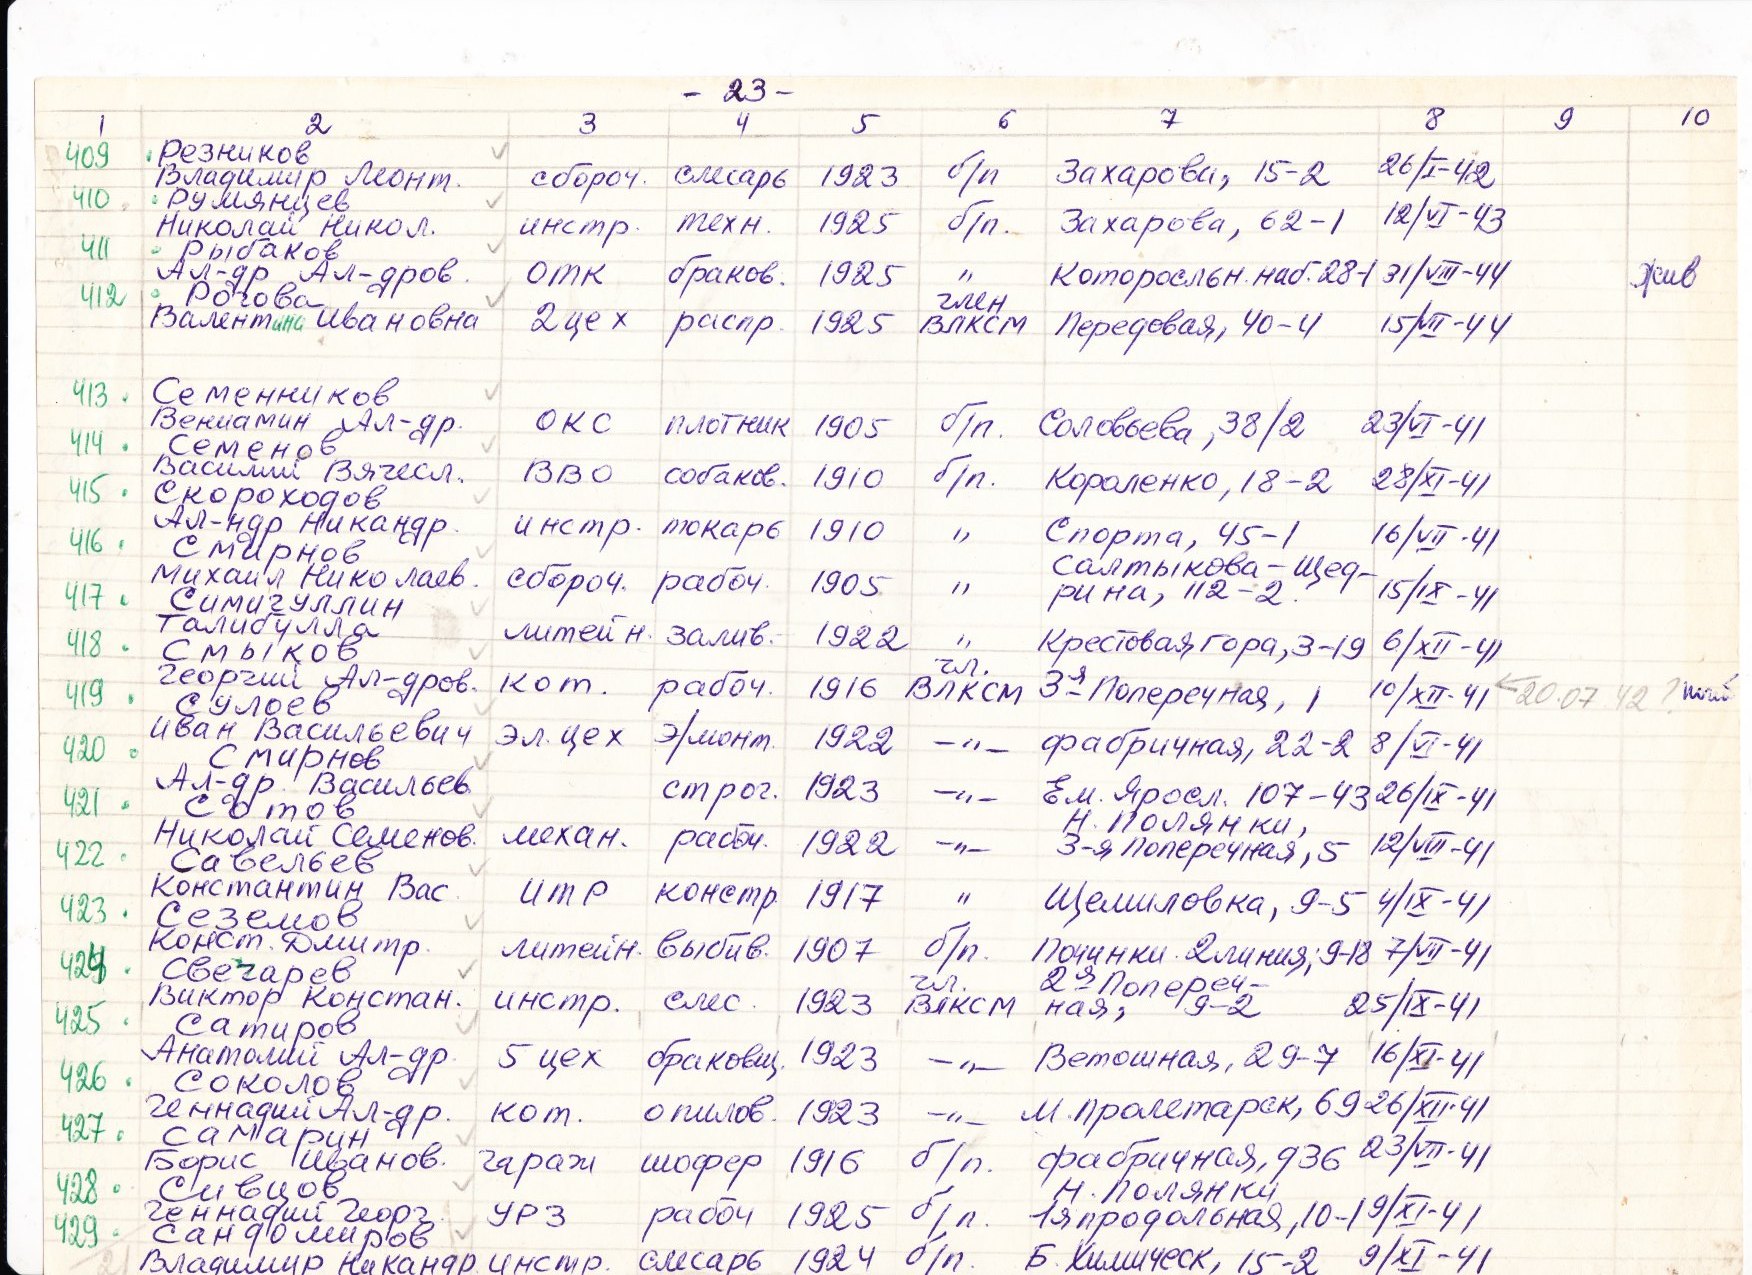 - 23 -
1 2 3 4 5 6 7 8 9 10
409 Резников
Владимир Леонт. сбороч. слесарь 1923 б/п Захарова, 15-2 26/I-42
410 Румянцев
Николай Никол. инстр. техн. 1925 б/п. Захарова, 62-1 12/VI-43
411 Рыбаков
Ал-др Ал-дров. ОТК браков. 1925 " Которосльн. наб. 28-1 31/VIII-44 жив
412 Рогова член
Валентина Ивановна 2 цех распр. 1925 ВЛКСМ Передовая, 40-4 15/VII-44
413. Семенников
Вениамин Ал-др. ОКС плотник 1905 б/п. Соловьева, 38/2 23/VI-41
414. Семенов
Василий Вячесл. ВВО собаков. 1910 б/п. Короленко, 18-2 28/XI-41
415. Скороходов
Ал-ндр Никандр. инстр. токарь 1910 " Спорта, 45-1 16/VII-41
416. Смирнов Салтыкова-Щед-
Михаил Николаев. сбороч. рабоч. 1905 " рина, 112-2. 15/IX-41
417. Симигуллин
Талибулла литейн. залив. 1922 " Крестовая гора, 3-19 6/XII-41
418. Смыков чл.
Георгий Ал-дров. кот. рабоч. 1916 ВЛКСМ 3-я Поперечная, 1 10/XII-41 ←20.07.42?
419. Сулоев
Иван Васильевич эл. цех э/монт. 1922 -"- фабричная, 22-2 8/VI-41
420. Смирнов
Ал-др. Васильев. строг. 1923 -"- Ем. Яросл. 107-43 26/IX-41
421. Сотов Н. Полянки,
Николай Семенов. механ. рабоч. 1922 -"- 3-я Поперечная, 5 12/VIII-41
422. Савельев
Константин Вас. ИТР констр. 1917 " Щемиловка, 9-5 4/IX-41
423. Сеземов
Конст. Дмитр. литейн. выбив. 1907 б/п. Починки. 2 линия, 9-18 7/VII-41
424. Свечарев чл. 2я Попереч-
Виктор Констан. инстр. слес. 1923 ВЛКСМ ная, 9-2 25/IX-41
425. Сатиров
Анатолий Ал-др. 5 цех браковщ. 1923 -"- Ветошная, 29-7 16/XI-41
426. Соколов
Геннадий Ал-др. кот. опилов. 1923 -"- М. Пролетарск, 69 26/XII-41
427. Самарин
Борис Иванов. гараж шофер 1916 б/п. фабричная, д36 23/VII-41
428. Сивцов Н. Полянки
Геннадий Георг. УРЗ рабоч 1925 б/п. 1я продольная, 10-1 9/XI-41
429. Сандомиров
Владимир Никандр. инстр. слесарь 1924 б/п. Б. Химическ, 15-2 9/XI-41